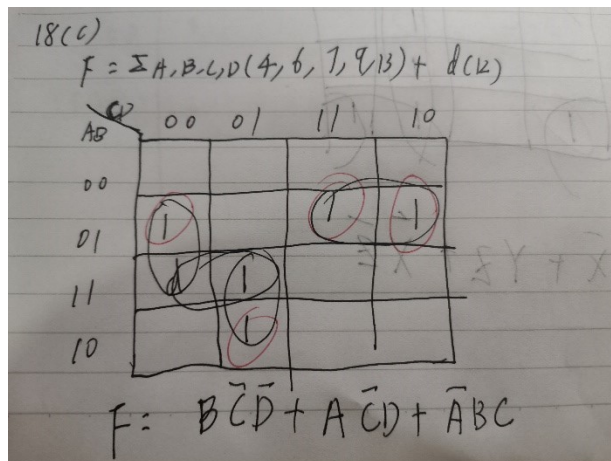 18(c)
F = ΣA,B,C,D(4,6,7,9,13) + d(12)
CD
AB 00 01 11 10
00
01 1 1 1
11 d 1
10 1
F = BC̄D̄ + AC̄D + ĀBC